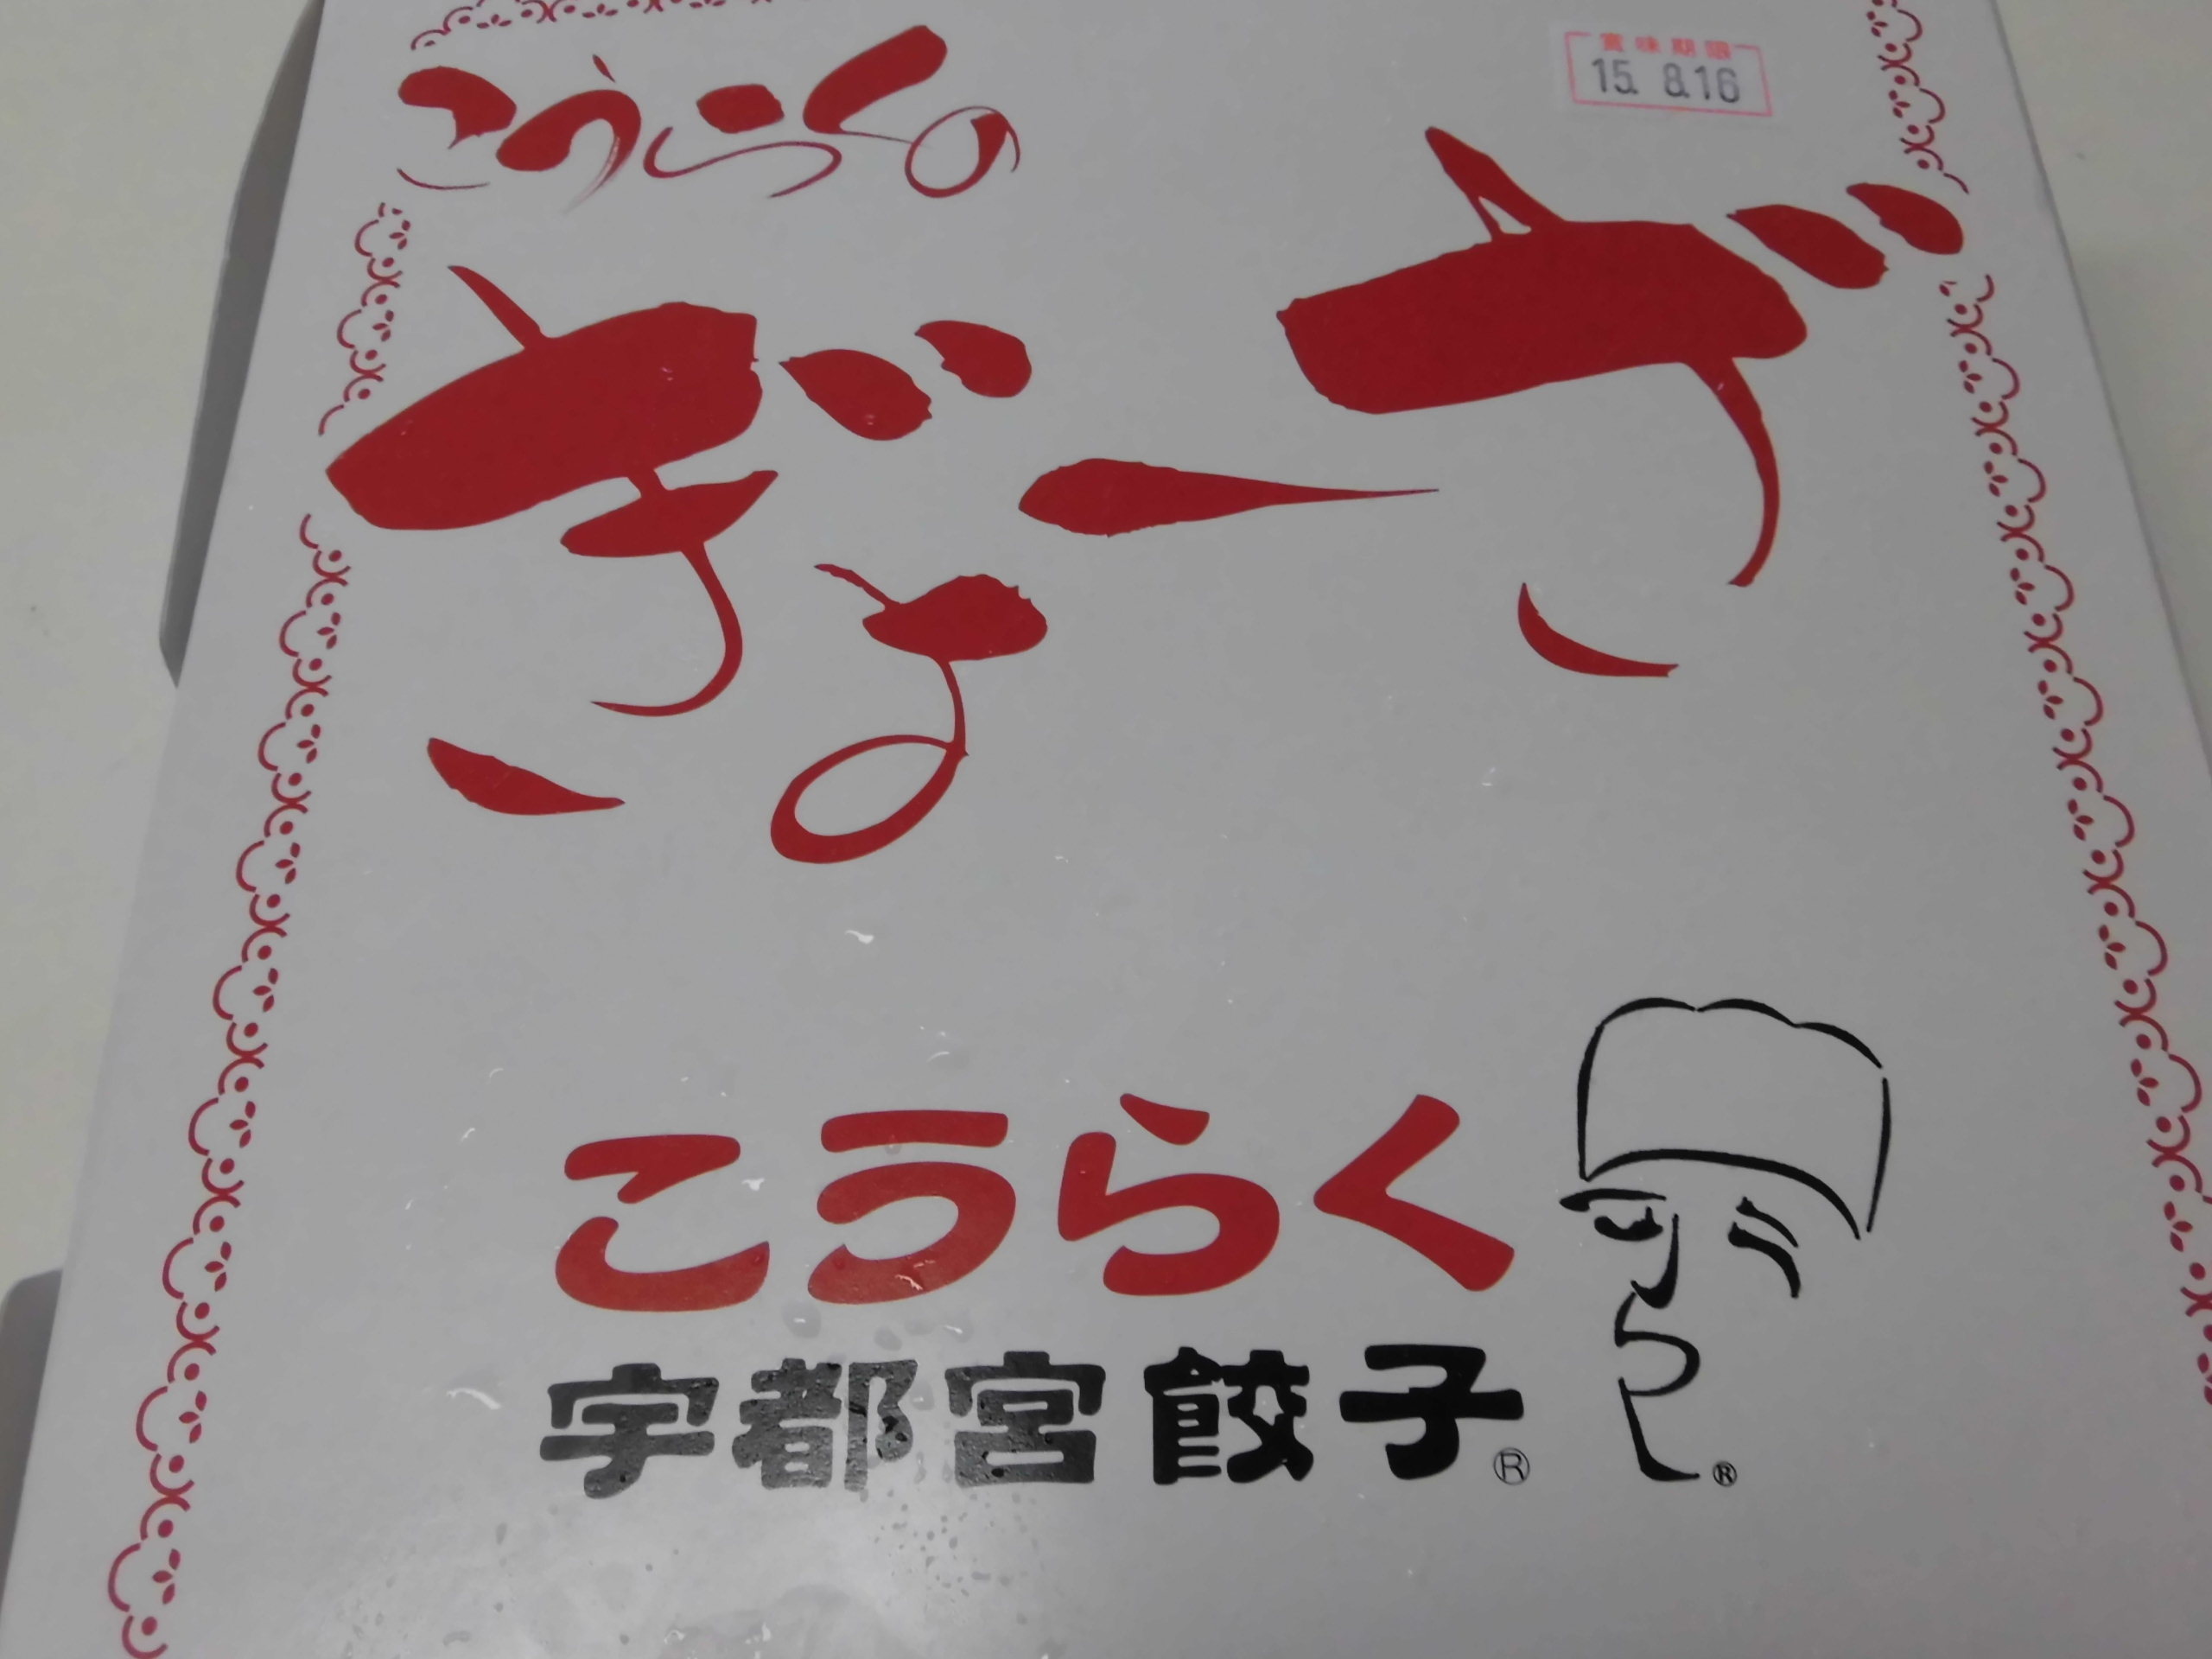 こうらくの
賞味期限
15. 8.16
ぎょーざ
こうらく
宇都宮餃子®
®